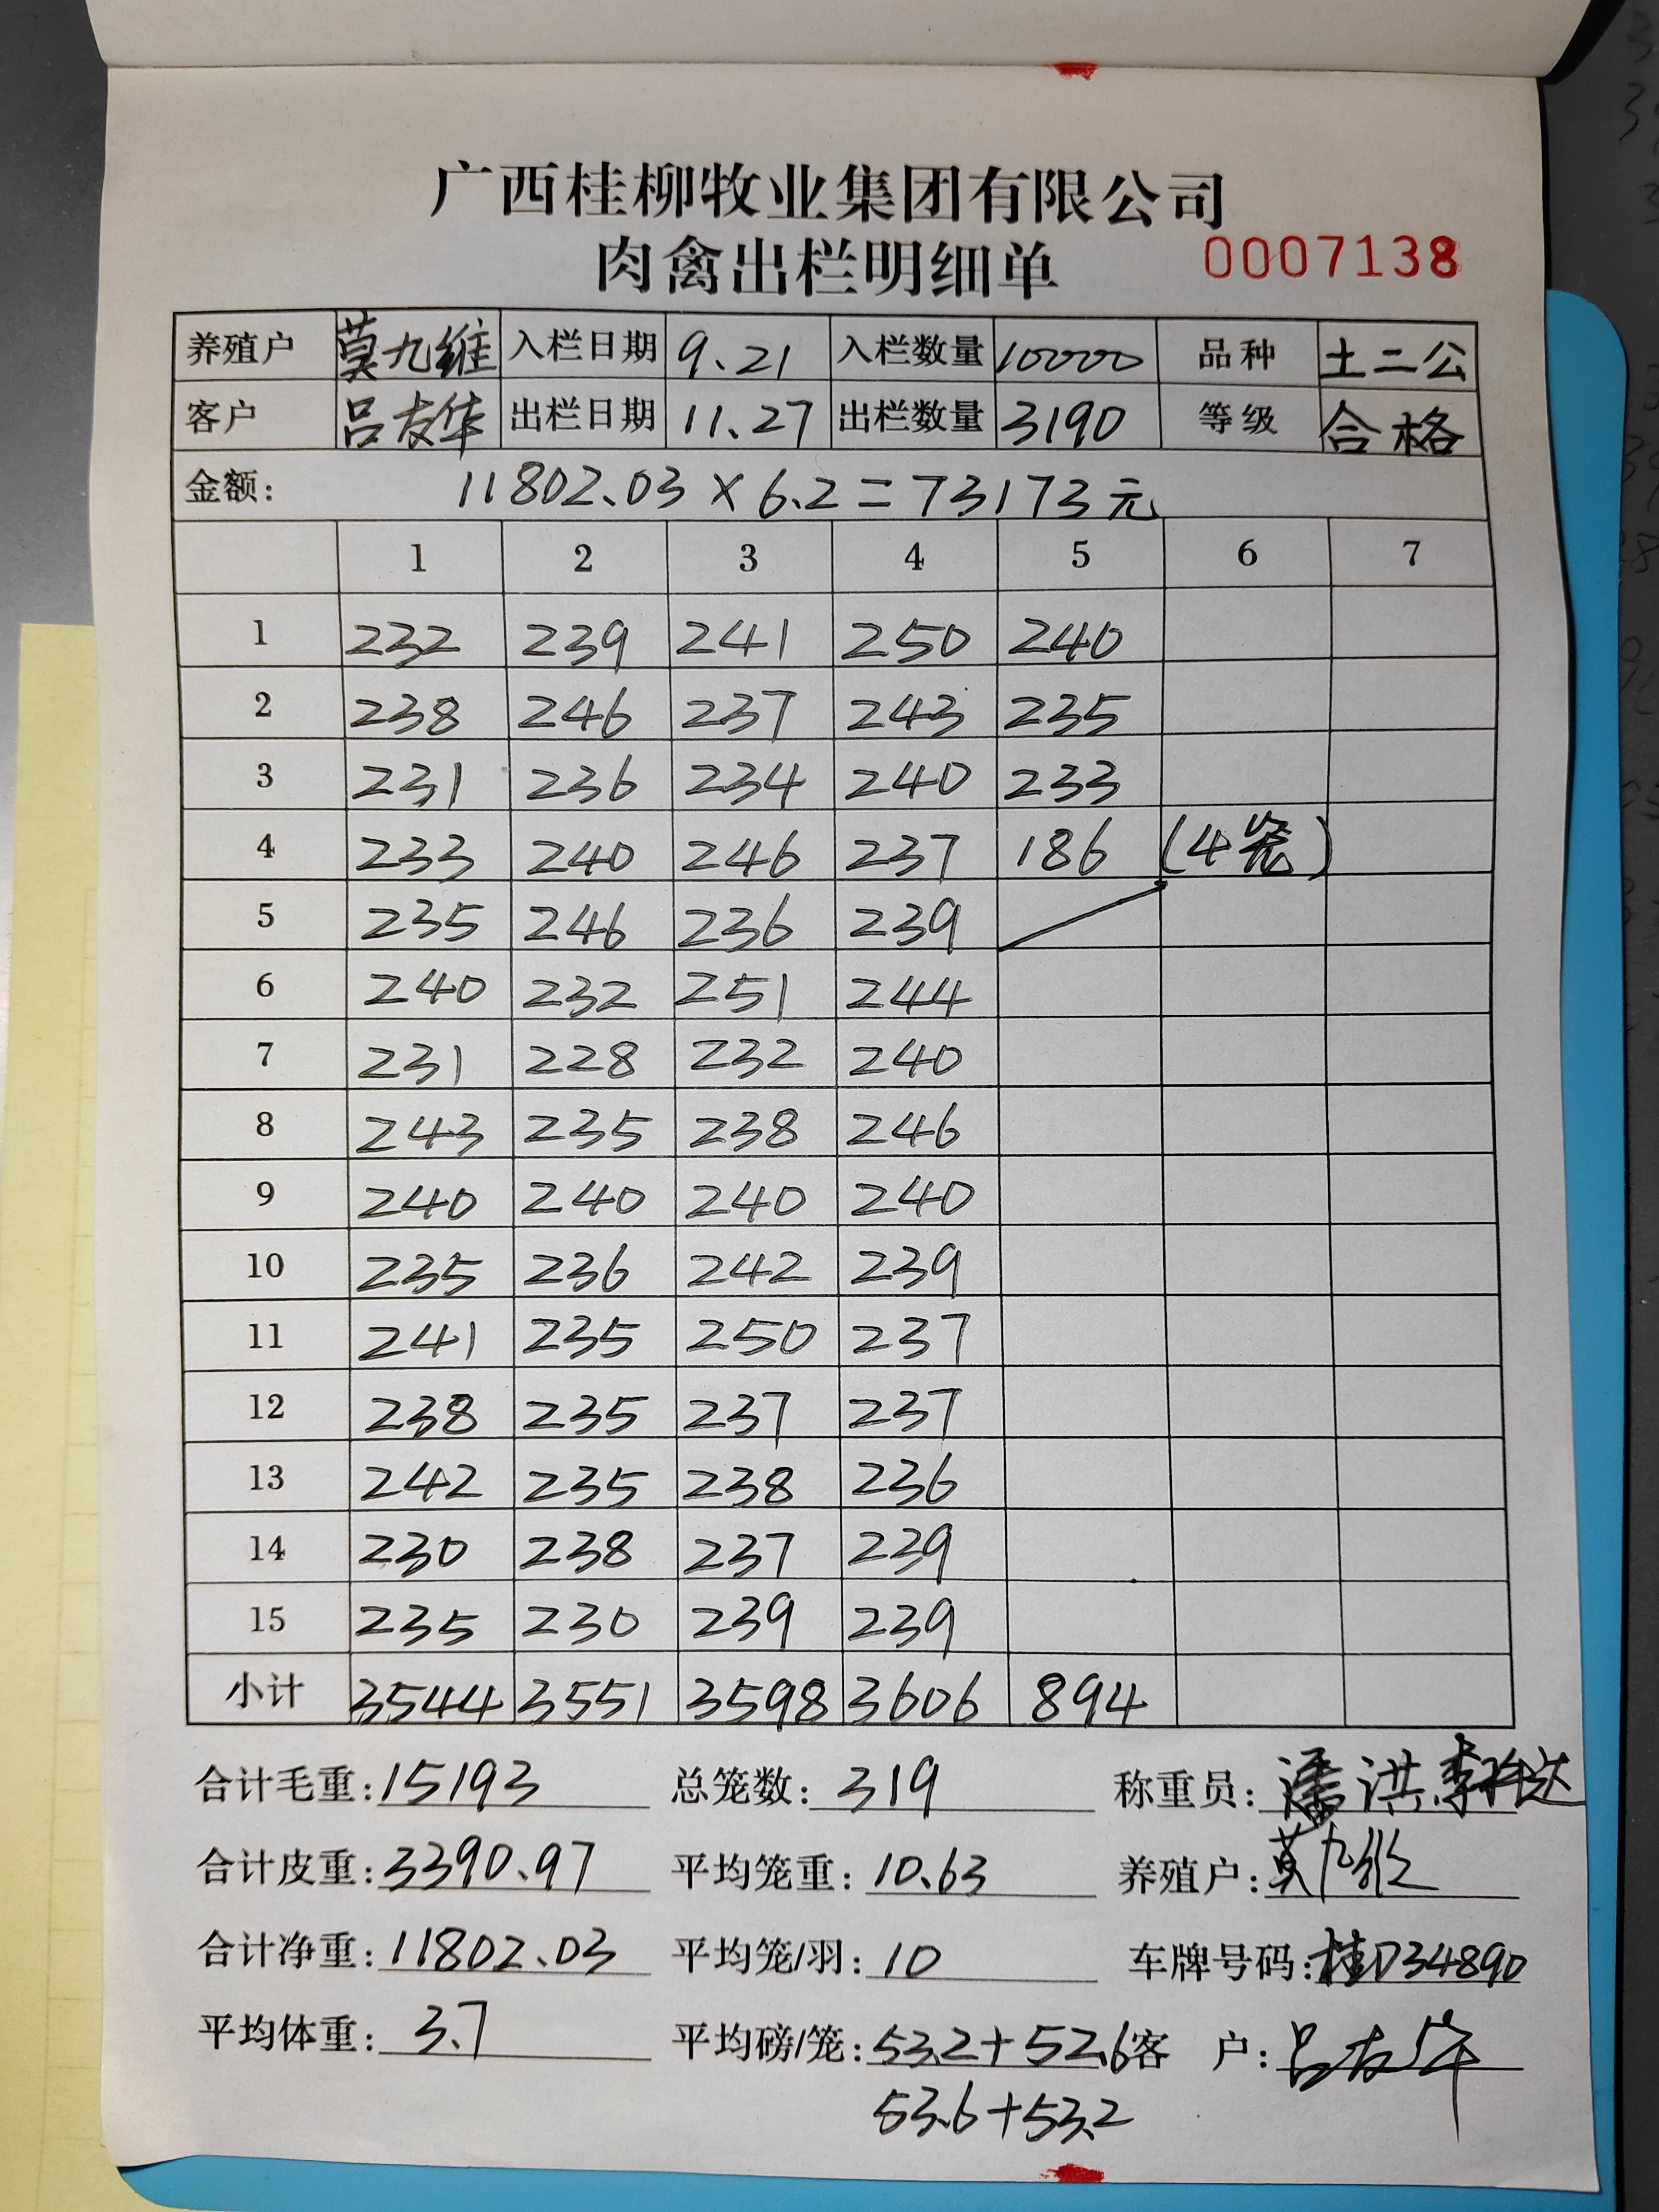 广西桂柳牧业集团有限公司
肉禽出栏明细单 0007138
养殖户 莫九维 入栏日期 9.21 入栏数量 10000 品种 土二公
客户 吕友华 出栏日期 11.27 出栏数量 3190 等级 合格
金额: 11802.03×6.2=73173元
1 2 3 4 5 6 7
1 232 239 241 250 240
2 238 246 237 243 235
3 231 236 234 240 233
4 233 240 246 237 186 (4笼)
5 235 246 236 239
6 240 232 251 244
7 231 228 232 240
8 243 235 238 246
9 240 240 240 240
10 235 236 242 239
11 241 235 250 237
12 238 235 237 237
13 242 235 238 236
14 230 238 237 239
15 235 230 239 239
小计 3544 3551 3598 3606 894
合计毛重: 15193 总笼数: 319 称重员: 潘洪
合计皮重: 3390.97 平均笼重: 10.63 养殖户: 莫九维
合计净重: 11802.03 平均笼/羽: 10 车牌号码: 桂D34890
平均体重: 3.7 平均磅/笼: 53.2+52.6 客户: 吕友华
53.6+53.2